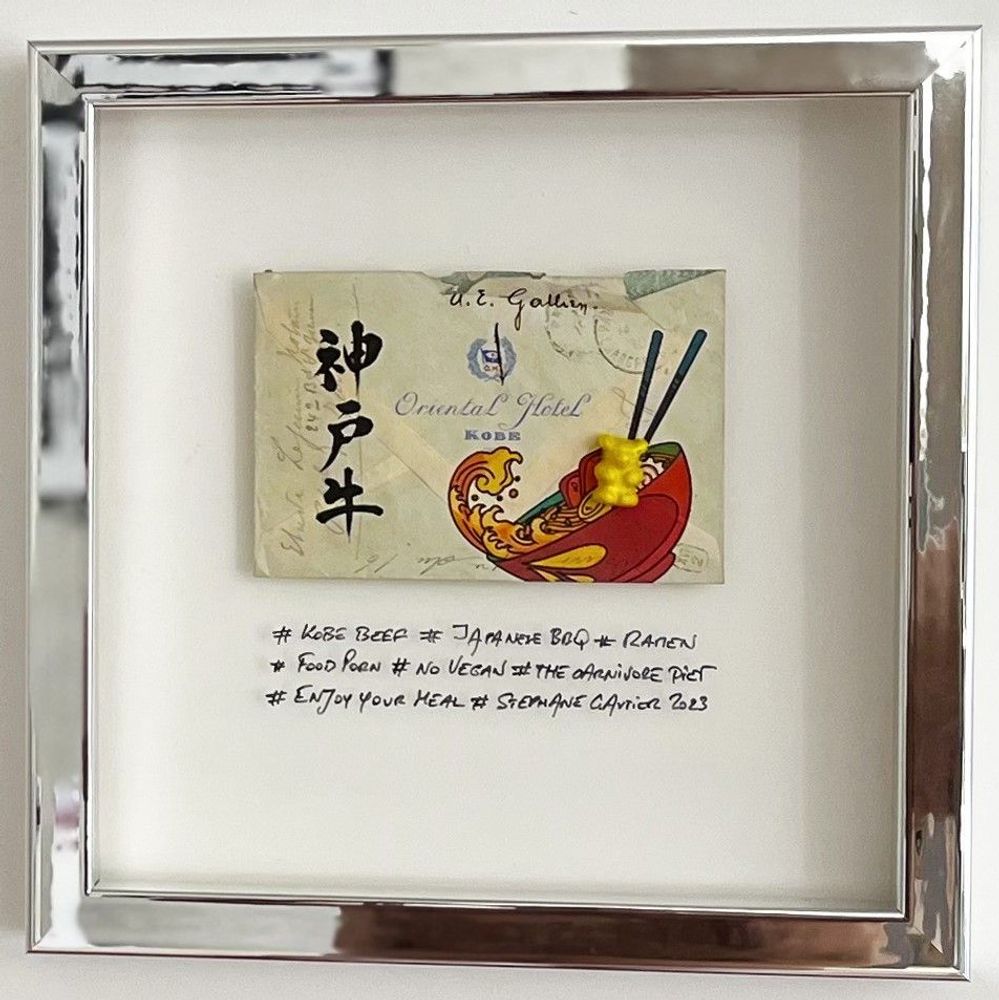 U. E. Gallien.
神戸牛
Oriental Hotel
KOBE
# KOBE BEEF # JAPANESE BBQ # RAMEN
# FOOD PORN # NO VEGAN # THE CARNIVORE DIET
# ENJOY YOUR MEAL # STEPHANE GAUTIER 2023